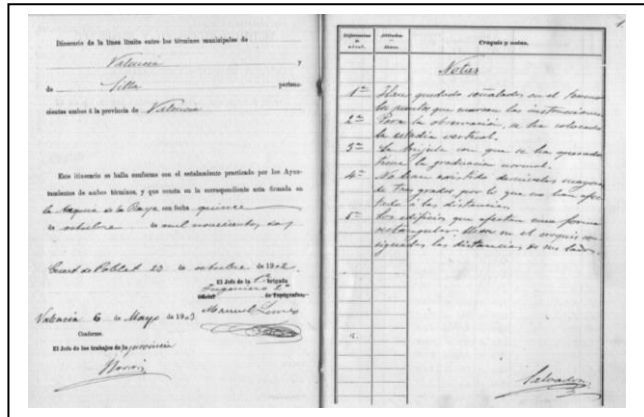 Itinerario de la línea límite entre los términos municipales de
Valencia y
de Silla pertene-
cientes ambos á la provincia de Valencia
Este itinerario se halla conforme con el señalamiento practicado por los Ayun-
tamientos de ambos términos, y que consta en la correspondiente acta firmada en
la Acequia de la Raya con fecha quince
de octubre de mil novecientos dos
Cuart de Poblet 23 de octubre de 1902
El Jefe de la 1ª brigada
Ingeniero 2º
Oficial de Topógrafos,
Manuel
Valencia 6 de Mayo de 1903
Conforme.
El Jefe de los trabajos de la provincia
1
Diferencias de nivel.
Altitudes.
Metros.
Croquis y notas.
Notas
1ª Han quedado señalados en el terreno
los puntos que marcan las instrucciones.
2ª Para la observación, se ha colocado
la estadia vertical.
3ª La brújula con que se ha operado
tiene la graduación normal.
4ª No han existido desniveles mayores
de tres grados por lo que no han afec-
tado á las distancias.
5ª Los edificios que afectan una forma
rectangular, llevan en el croquis con-
signadas las distancias de sus lados.
Salvador